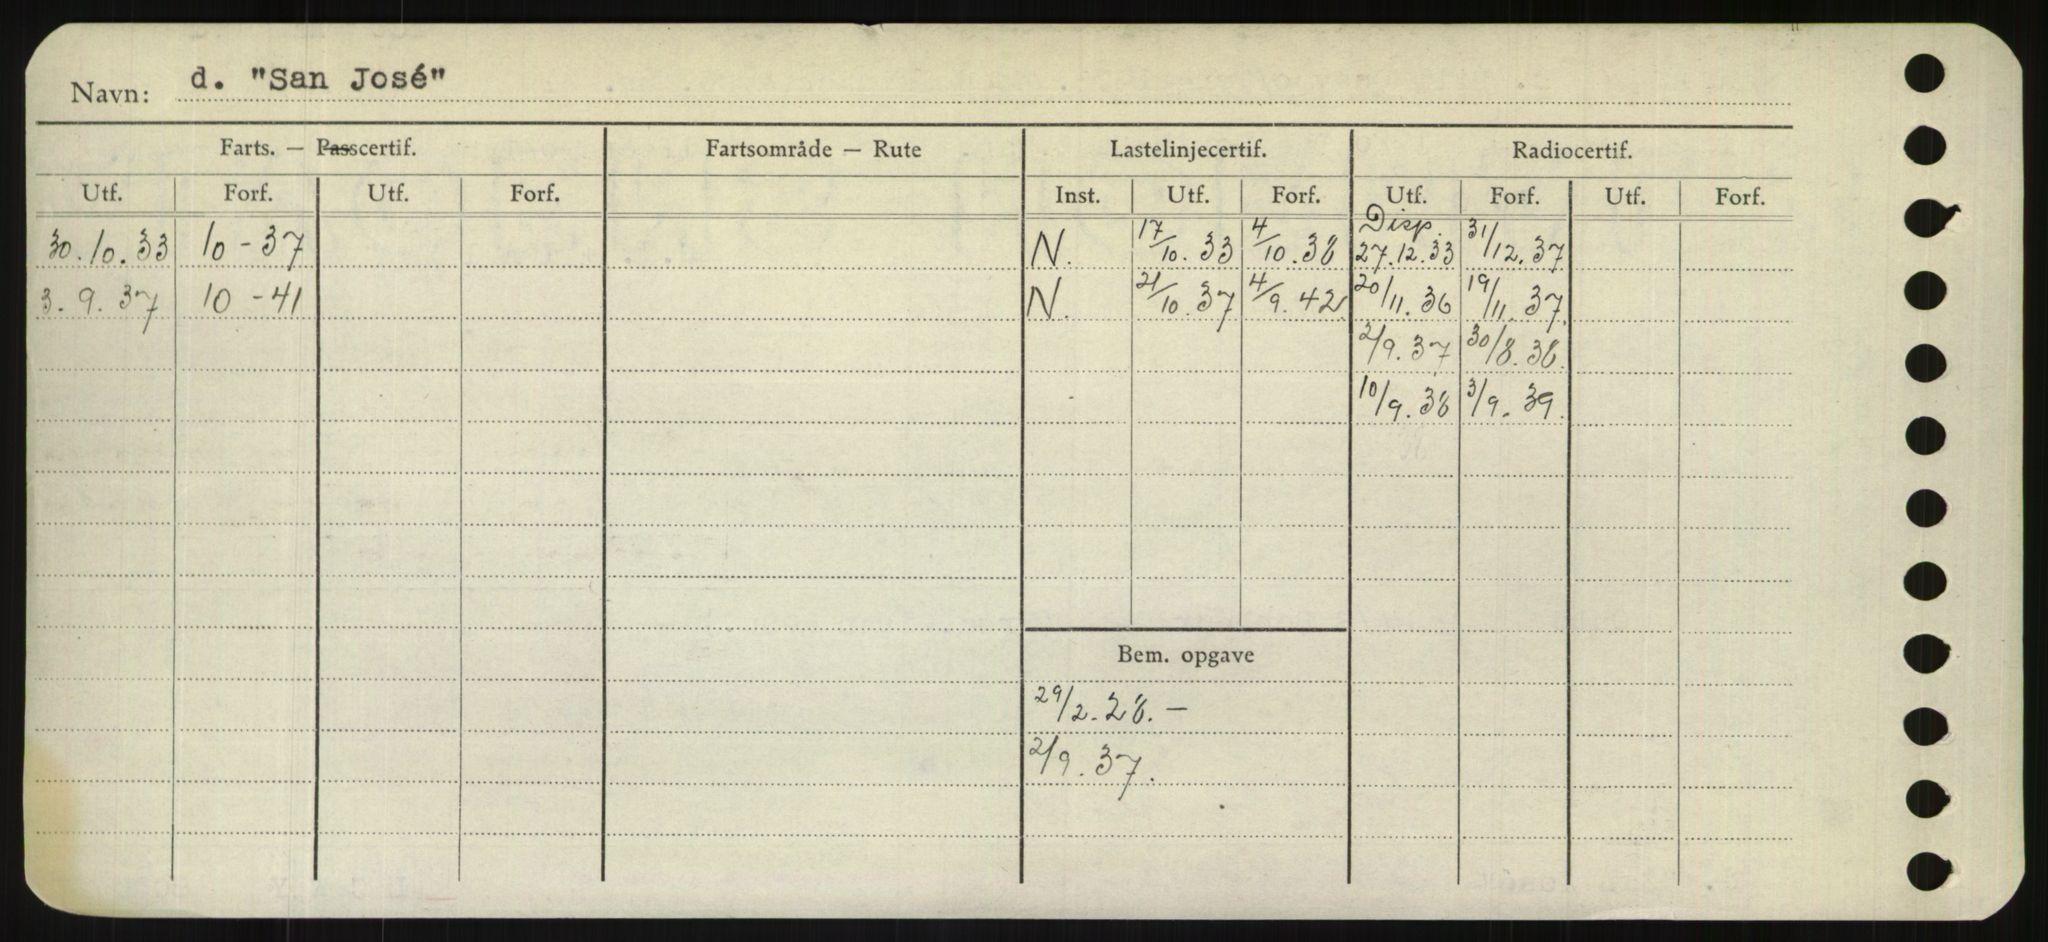 Navn: d. "San José"
Farts. — Passcertif. Fartsområde — Rute Lastelinjecertif. Radiocertif.
Utf. Forf. Utf. Forf. Inst. Utf. Forf. Utf. Forf. Utf. Forf.
30.10.33 10-37 N. 17/10.33 4/10.38 Disp. 27.12.33 31/12.37
3.9.37 10-41 N. 21/10.37 4/9.42 20/11.36 19/11.37
2/9.37 30/8.38
10/9.38 3/9.39.
Bem. opgave
29/2.28.—
2/9.37.